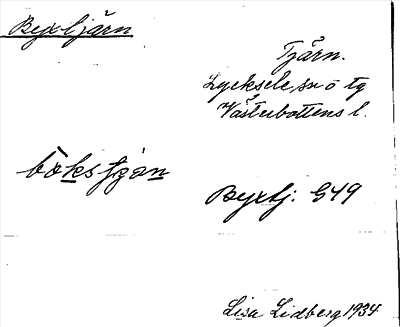 Byxtjärn
Tjärn.
Lycksele sn o tg
Västerbottens l.
bòksʃɟàn
Byxtj: G49
Lisa Lidberg 1934